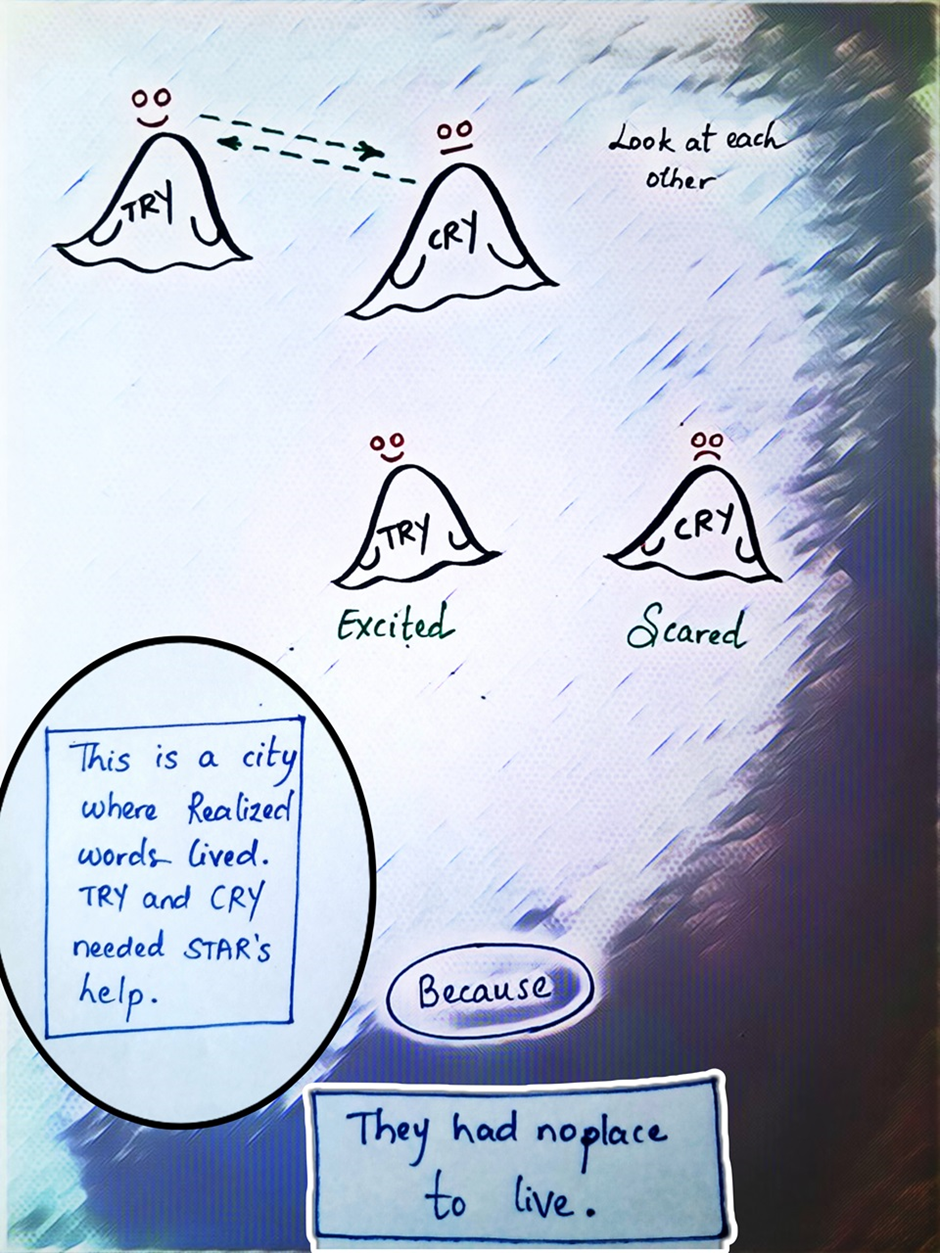 TRY
CRY
Look at each
other
TRY
CRY
Excited
Scared
This is a city
where Realized
words lived.
TRY and CRY
needed STAR's
help.
Because
They had noplace
to live.